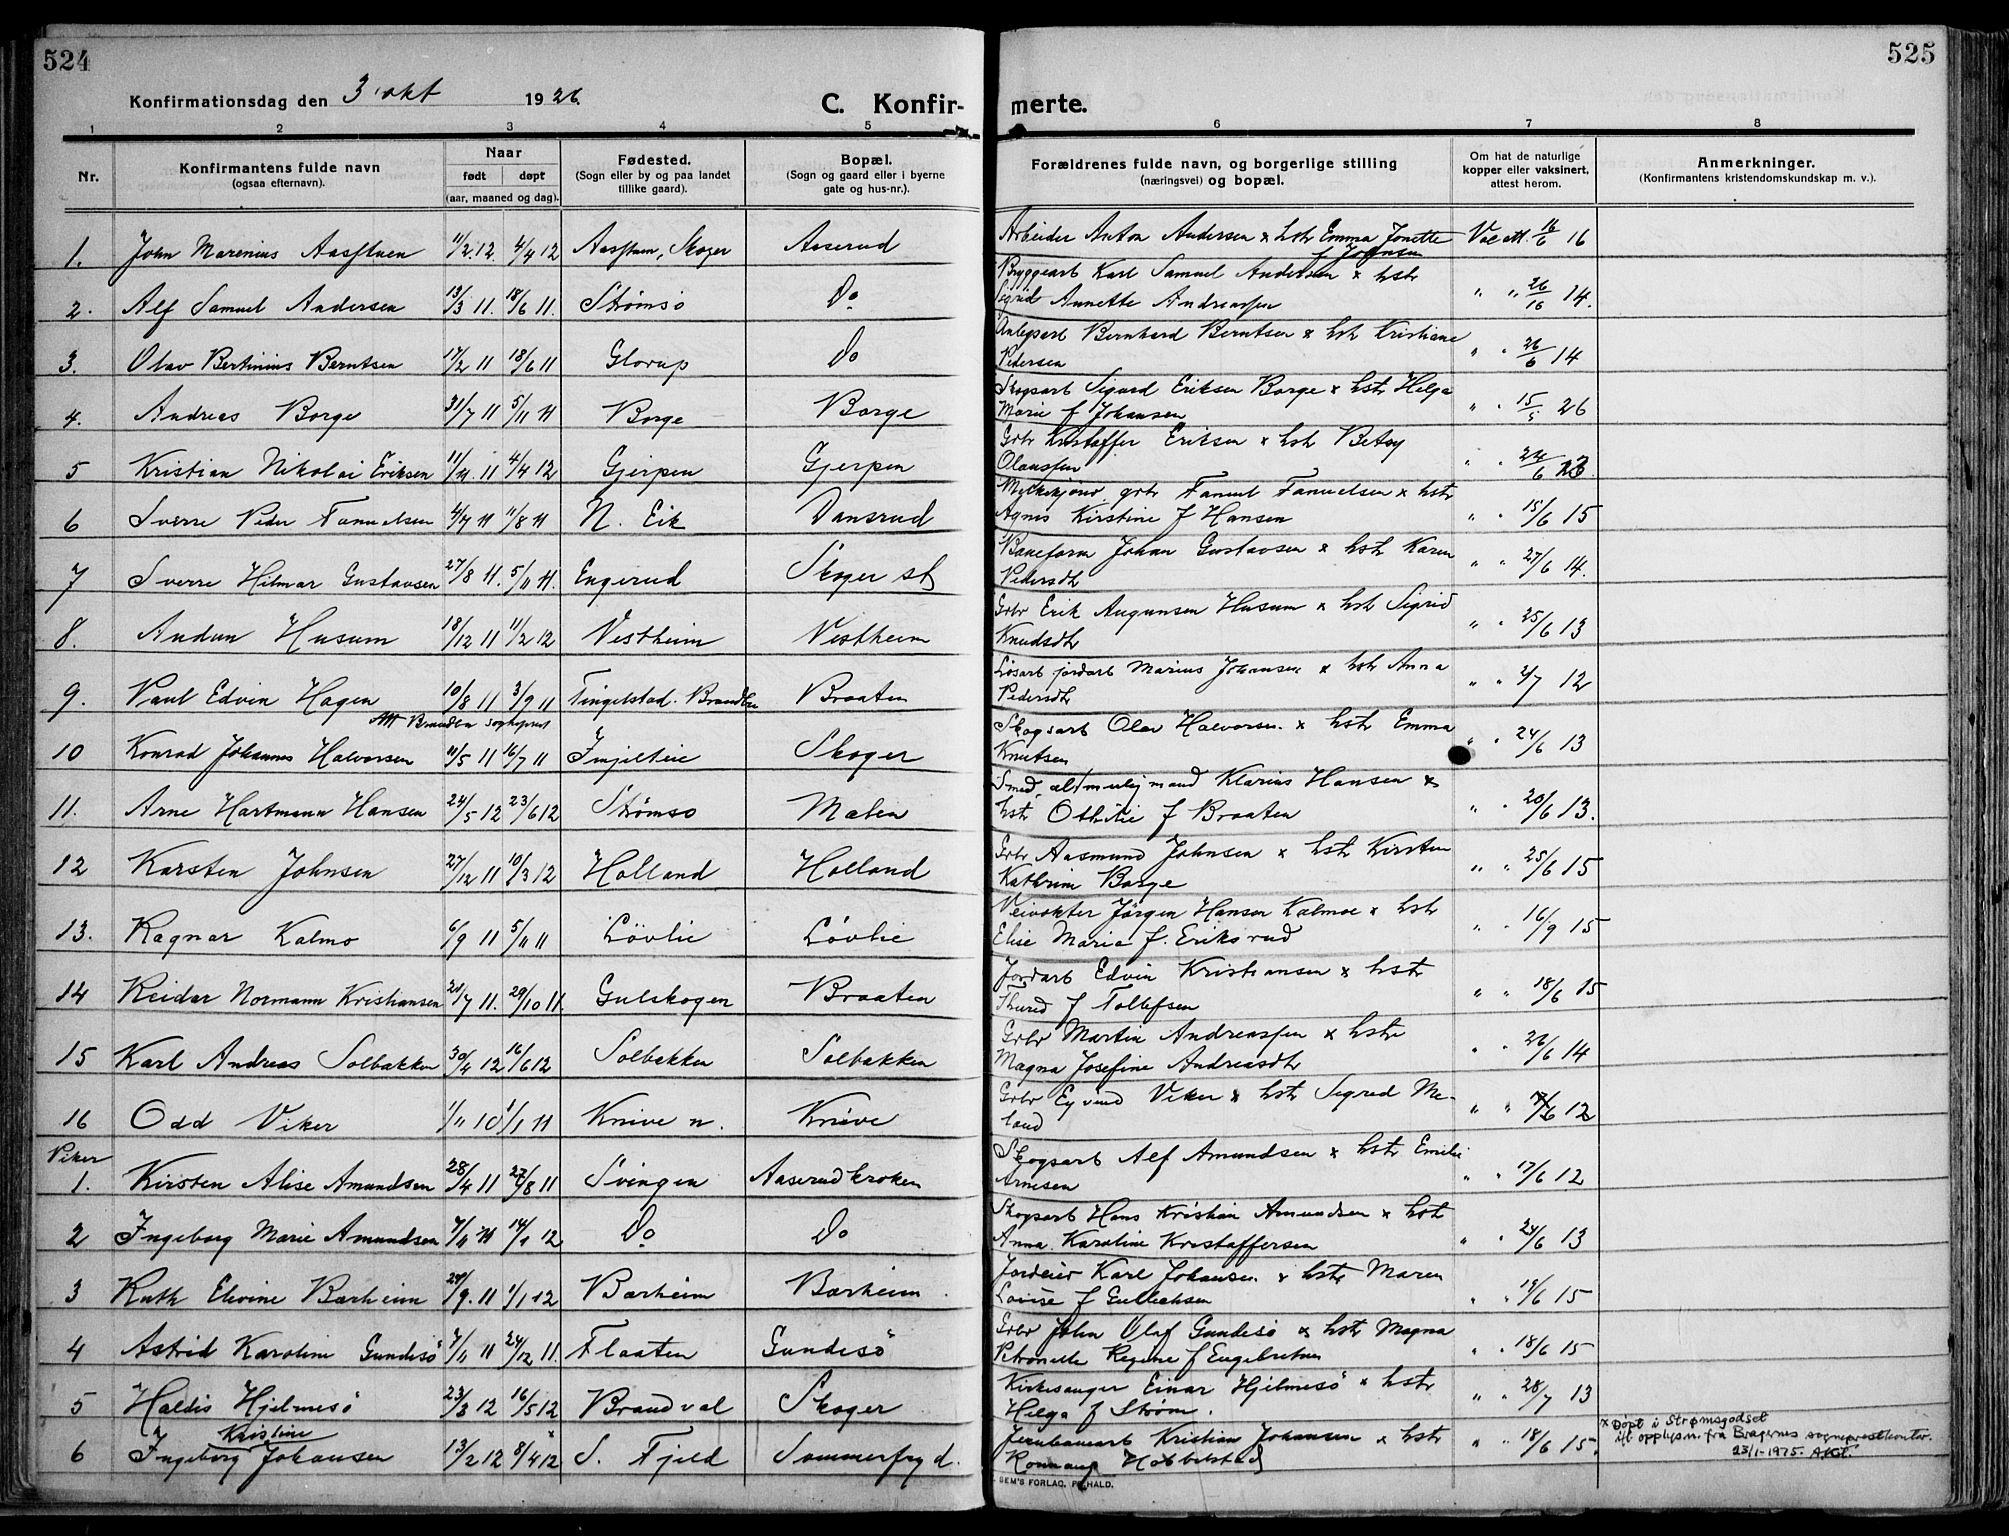 524
525
Konfirmationsdag den 3 okt 1926.
C. Konfirmerte.
1 2 3 4 5 6 7 8
Nr.
Konfirmantens fulde navn (ogsaa efternavn).
Naar født døpt (aar, maaned og dag).
Fødested. (Sogn eller by og paa landet tillike gaard).
Bopæl. (Sogn og gaard eller i byerne gate og hus-nr.).
Forældrenes fulde navn, og borgerlige stilling (næringsvei) og bopæl.
Om hat de naturlige kopper eller vaksinert, attest herom.
Anmerkninger. (Konfirmantens kristendomskundskap m. v.).
1. John Marenius Aasstuen 11/2.12. 4/4 12 Aasstuen, Skoger Aaserud Arbeider Anton Andersen x hstr Emma Jonette f Johnsen Vac att. 16/6 16
2. Alf Samuel Andersen 13/3 11. 18/6 11. Strømsø Do Bryggearb Karl Samuel Andersen x hstr Sigrid Annette Andreassen " " 26/16 14.
3. Olav Bertinius Berntsen 17/2 11 18/6 11 Glorup Do Anlegsarb Bernhard Berntsen x hstr Kristiane Pedersen " " 26/6 14
4. Andreas Borge 31/7 11 5/11 11 Borge Borge Skogsarb Sigurd Eriksen Borge x hstr Helga Marie f Johansen " " 15/5 26
5 Kristian Nikolai Eriksen 11/11. 11 4/4 12 Gjerpen Gjerpen Grbr Kristoffer Eriksen x hstr Betsy Olaussen " " 24/6 13.
6 Sverre Peder Fanuelsen 4/7 11 11/8 11 N. Eik Dansrud Melkekjører, grbr Fanuel Fanuelsen x hstr Agnes Kirstine f Hansen " " 15/6 15
7 Sverre Hilmar Gustavsen 27/8 11. 5/11 11. Engerud Skoger st Baneform Johan Gustavsen x hstr Karen Pedersdtr " " 27/6 14.
8. Audun Husum 18/12 11 11/2 12 Vestheim Vestheim Grbr Erik Augunsen Husum x hstr Sigrid Knudsdtr " " 25/6 13
9. Paul Edvin Hagen 10/8 11 3/9 11 Tingelstad. Brandbu Braaten Løsarb jordarb Marius Johansen x hstr Anna Pedersdtr " " 2/7 12
Att Brandbu sogneprest
10 Konrad Johannes Halvorsen 11/5 11 16/7 11 Skoger Skogsarb Olav Halvorsen x hstr Emma Knutsen " " 24/6 13
11. Arne Hartmann Hansen 24/5 12 23/6 12 Strømsø Møbin Smed, altmuligmand Klarius Hansen x hstr Othilie f Braaten " " 20/6 13.
12 Karsten Johnsen 27/12 11 10/3 12 Holland Holland Grbr Aasmund Johnsen x hstr Kirsten Kathrine Borge " " 25/6 15
13. Ragnar Kalmo 6/9 11 5/11 11 Løvlie Løvlie Veivokter Jørgen Hansen Kalmoe x hstr Elise Marie f. Eriksrud " " 16/9 15
14 Reidar Normann Kristiansen 21/7 11. 29/10 11. Gulskogen Braaten Jordarb Edvin Kristiansen x hstr Thurid f Tollefsen " " 18/6 15
15 Karl Andreas Solbakken 30/4 12 16/6 12 Solbakken Solbakken Grbr Martin Andreassen x hstr Magna Josefine Andreasdtr " " 26/6 14
16 Odd Viker 1/11 10 1/1 11 Knive n. Knive Grbr Eyvind Viker x hstr Sigrid Meland " " 12
Piker
1. Kirsten Alise Amundsen 28/4 11 27/8 11 Svingen Aaserudkroken Skogsarb Alf Amundsen x hstr Emilie Arnesen " " 17/6 12
2 Ingeborg Marie Amundsen 7/11 11 14/1 12 Do Do Skogsarb Hans Kristian Amundsen x hstr Anna Karoline Kristoffersen " " 24/6 13
3 Ruth Elvine Barheim 24/9. 11 1/1 12 Barheim Barheim. Jordeier Karl Johansen x hstr Maren Lovise f Gulliksen " " 14/6 15
4 Astrid Karoline Gundesø 7/11 11 24/12 11. Flaaten Gundesø Grbr John Olaf Gundesø x hstr Magna Petronelle Regine f Engebretsen " " 18/6 15
5 Haldis Hjelmesø 23/3 12 16/5 12 Brandval Skoger Kirkesanger Einar Hjelmesø x hstr Helga f Strøm. " " 28/7 13
6 Ingeborg Kristine Johansen 13/2 12 8/4 12 x S. Fjeld Sommerfryd. Jernbanearb Kristian Johansen x hstr Ronnaug Hobbelstad " " 18/6 15.
x Døpt i Strømsgodset
ifl opplysn. fra Bragernes sogneprestkontor.
23/1-1975.
SEM'S FORLAG, FR.HALD.